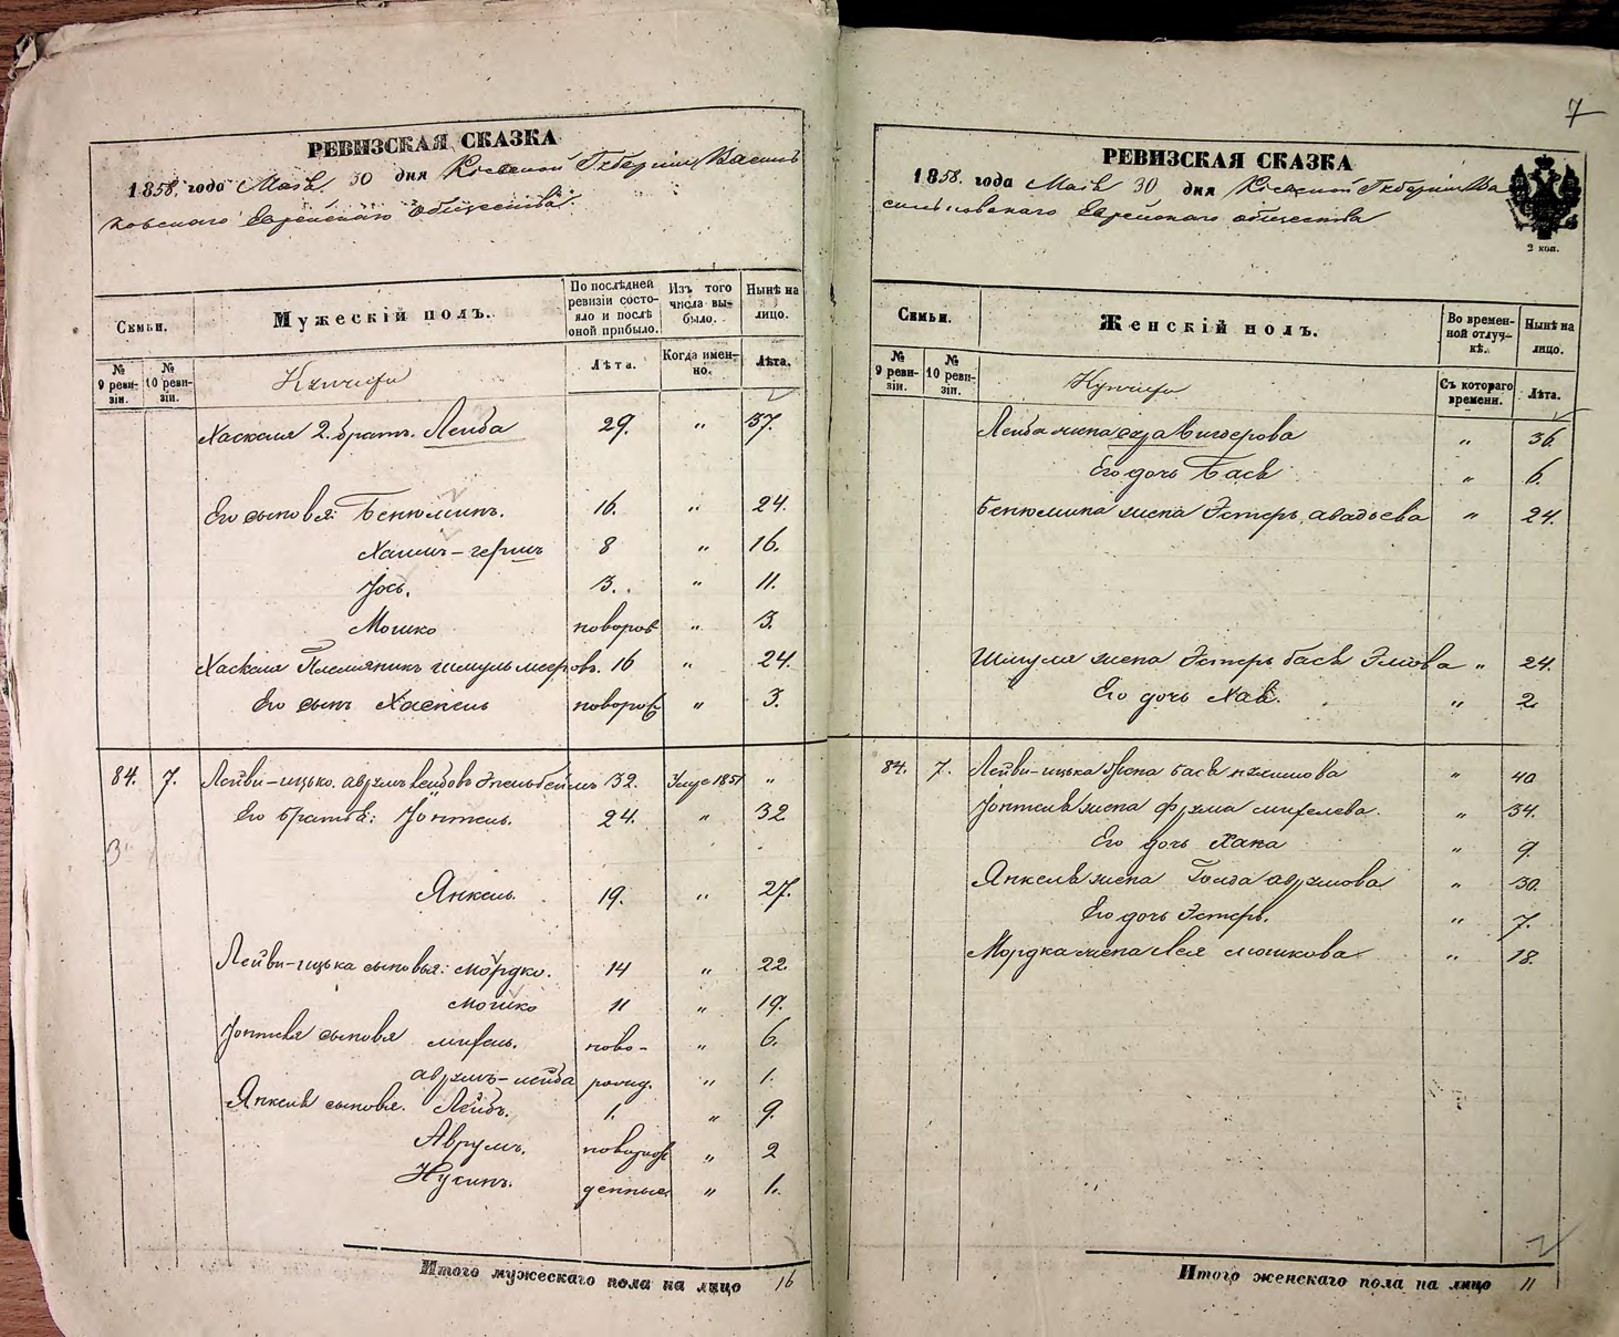 РЕВИЗСКАЯ СКАЗКА
1858 года Маія 30 дня Кіевской Губерніи Василь
ковскаго Еврейскаго общества.
Семьи.
Мужескій полъ.
По послѣдней ревизіи состояло и послѣ оной прибыло.
Изъ того числа выбыло.
Нынѣ на лицо.
№ 9 ревизіи.
№ 10 ревизіи.
Купцы
Лѣта.
Когда именно.
Лѣта.
Хаскеля 2. братъ. Лейба 29. " 37.
Его сыновья: Бенюминъ. 16. " 24.
Хаимъ-гершъ 8 " 16.
Іось. 3. " 11.
Мошко новорож " 3.
Хаскеля Племянникъ шмуль мееровъ. 16 " 24.
Его сынъ Хаскель новорож " 3.
84. 7. Лейви-ицько. аврумъ лейбовъ 32. Умре 1851 "
Его братья: Іонтель. 24. " 32
3
Янкель. 19. " 27.
Лейви-ицька сыновья: мордко. 14 " 22.
мошко 11 " 19.
Іонтеля сыновья ново- " 6.
аврумъ-лейба рожд. " 1.
Янкеля сыновья. Лейбъ. 1. " 9.
Аврумъ. новорож " 2
Нусинъ. денные " 1.
Итого мужескаго пола на лицо 16
7
РЕВИЗСКАЯ СКАЗКА
1858. года Маія 30 дня Кіевской Губерніи Ва
сильковскаго Еврейскаго общества
2 коп.
Семьи.
Женскій полъ.
Во временной отлучкѣ.
Нынѣ на лицо.
№ 9 ревизіи.
№ 10 ревизіи.
Купцы
Съ котораго времени.
Лѣта.
Лейба жена сура Вигдорова " 36.
Его дочь Бася " 6.
Бенюмина жена Эстеръ авадьева " 24.
Шмуля жена Эстеръ бася " 24.
Его дочь Хая. " 2.
84. 7. Лейви-ицька жена бася " 40
Іонтеля жена фрума " 34.
Его дочь Хана " 9.
Янкеля жена Голда аврумова " 30.
Его дочь Эстеръ. " 7.
Мордка жена Лея мошкова " 18.
Итого женскаго пола на лицо 11